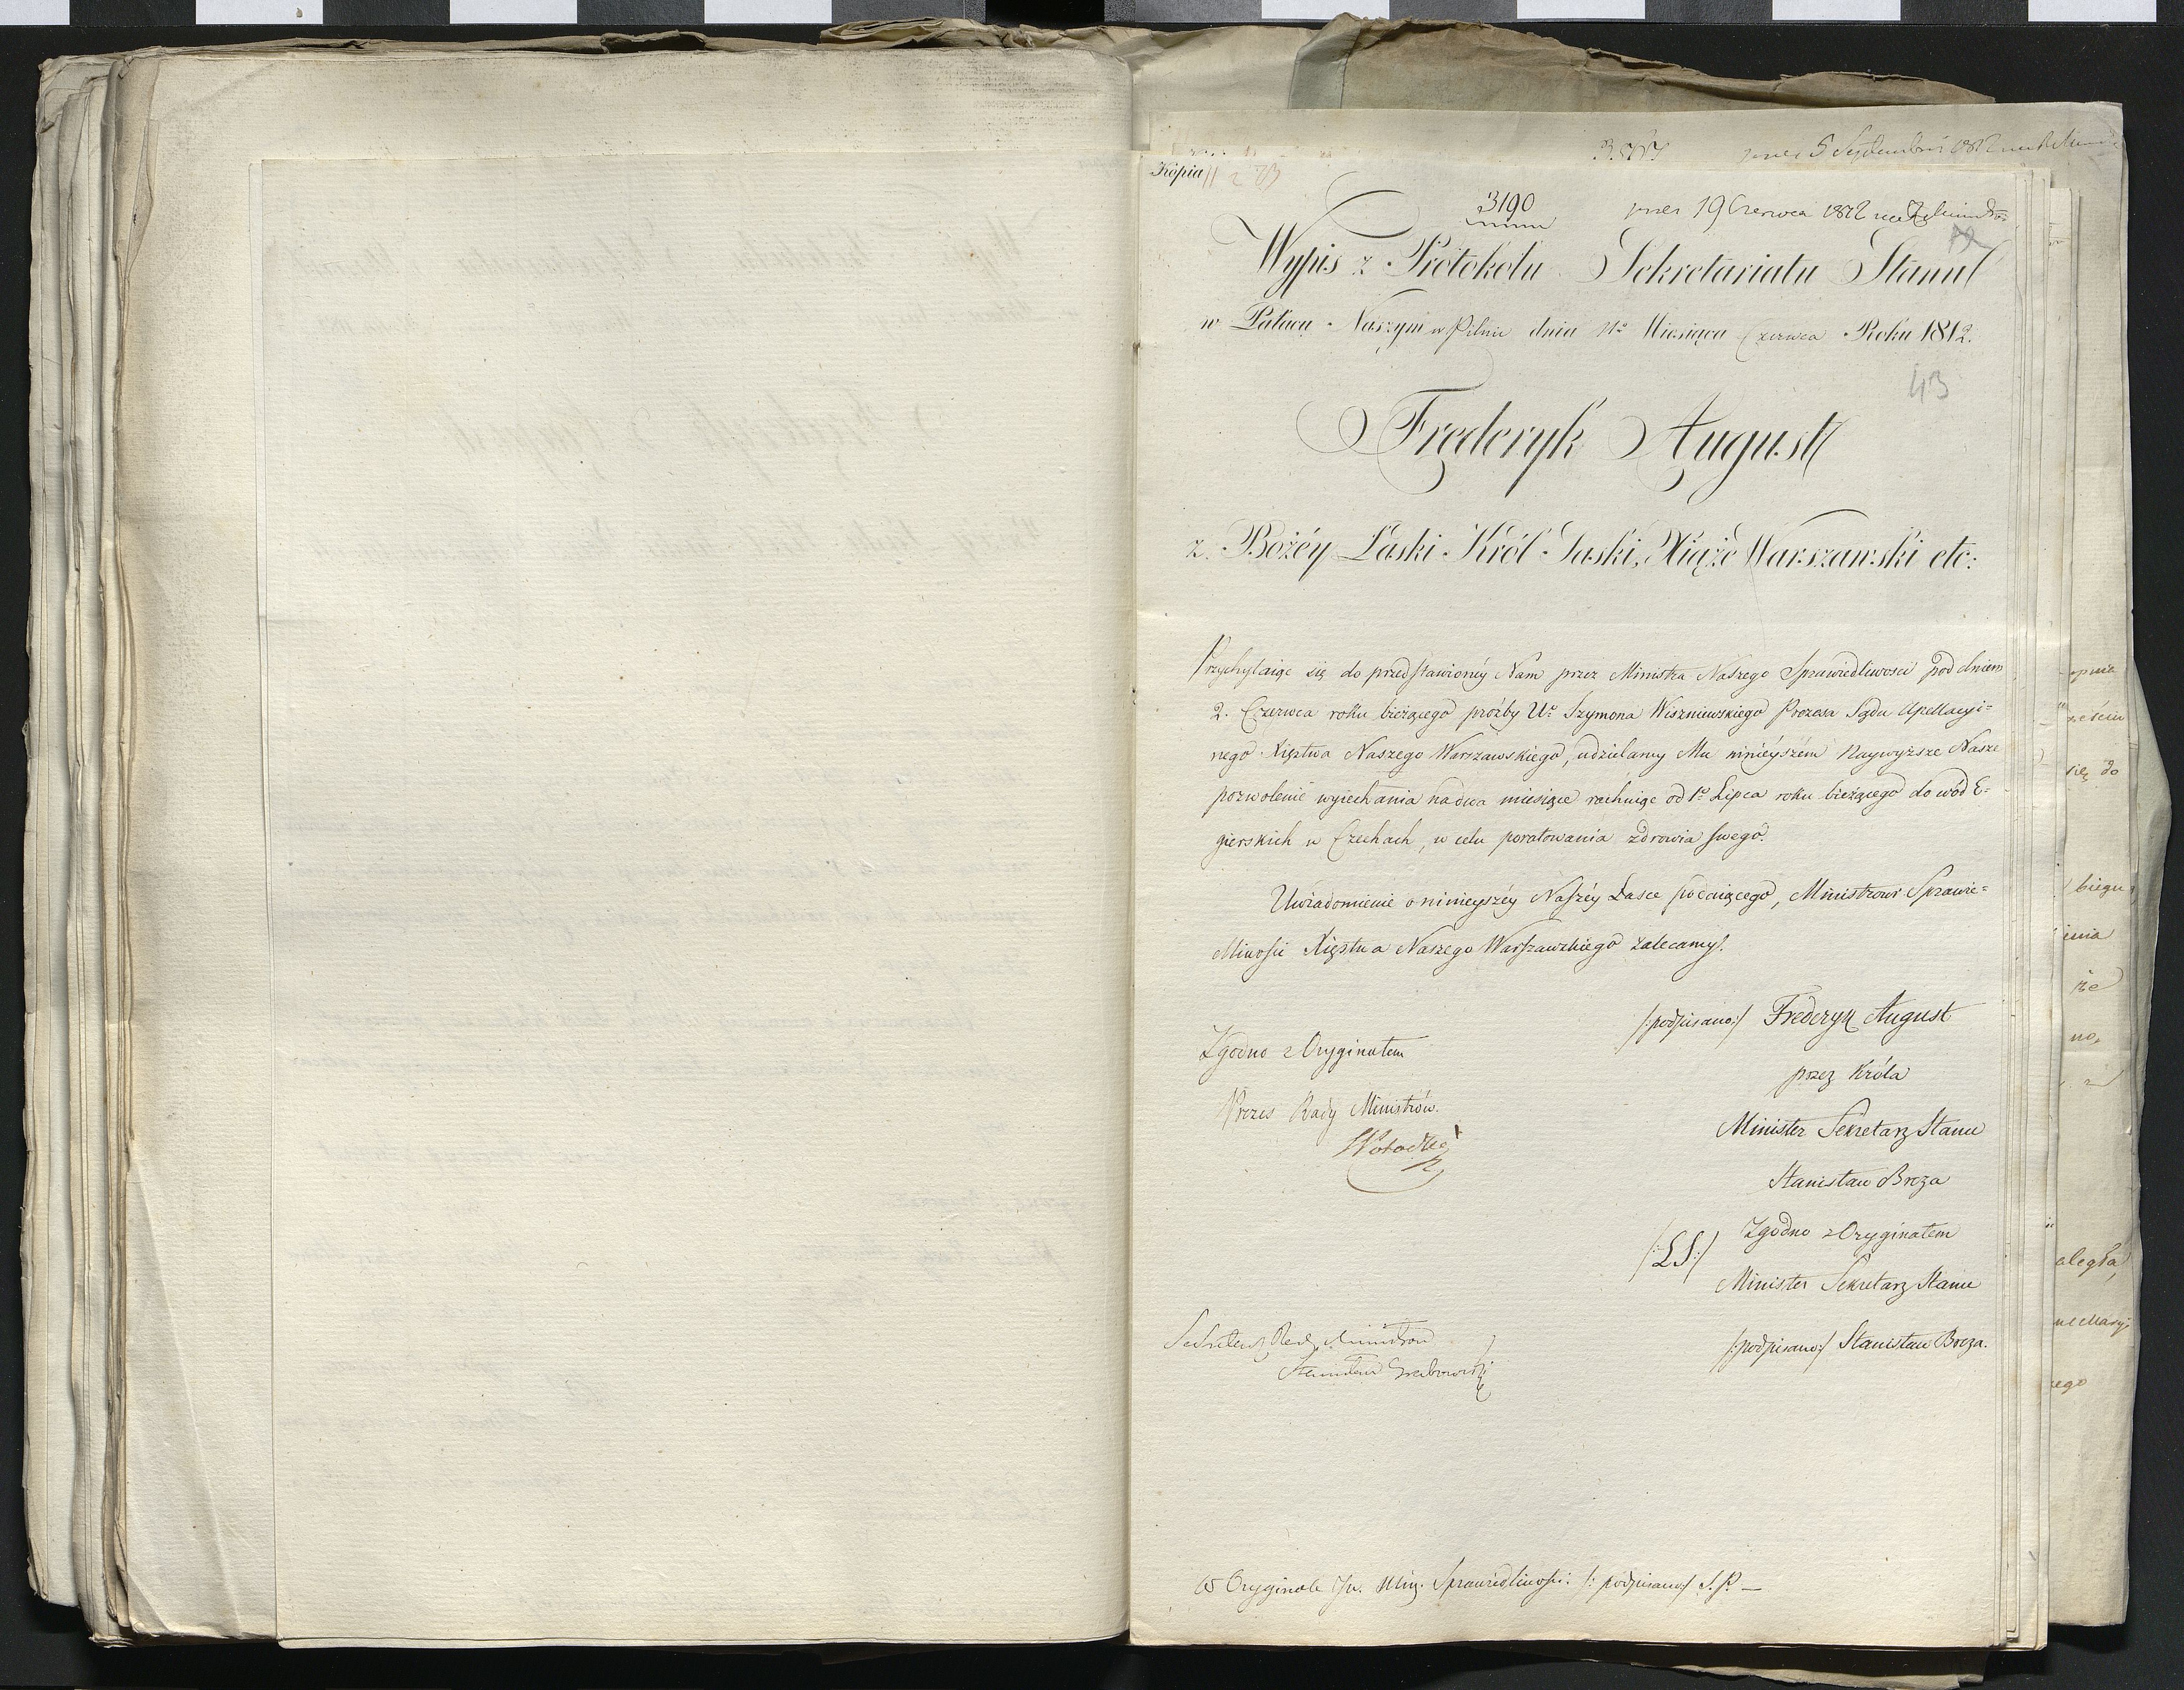 5 Septembris 1812
Kopia
3190
19 Czerwca 1812
Wypis z Protokołu Sekretariatu Stanu
w Pałacu Naszym w Pilnic dnia 11º Miesiąca Czerwca Roku 1812.
43
Frederyk August
z Bożéy Łaski Król Saski, Xiąże Warszawski etc:
Przychylaiąc się do przedstawionéy Nam przez Ministra Naszego Sprawiedliwosci pod dniem
2. Czerwca roku bieżącego próźby Uº Szymona Wiszniewskiego Prezesa Sądu Apellacyi=
nego Xięstwa Naszego Warszawskiego, udzielamy Mu ninieyszém Naywyższe Nasze
pozwolenie wyiechania na dwa miesiące rachuiąc od 1º Lipca roku bieżącego do wód E=
gierskich w Czechach, w celu poratowania zdrowia swego.
Uwiadomienie o ninieyszéy Naszéy Łasce proszącego, Ministrowi Sprawie=
dliwości Xięstwa Naszego Warszawskiego zalecamy.
/:podpisano:/ Frederyk August
przez Króla
Minister Sekretarz Stanu
Stanisław Breza
Zgodno z Oryginałem
Prezes Rady Ministrów.
/:LS:/
Zgodno z Oryginałem
Minister Sekretarz Stanu
/:podpisano:/ Stanisław Breza.
Sekretarz Rady Ministrów
Stanisław Grabowski
W Oryginale JW. Min. Sprawiedliwości /: podpisano:/ S. P. —
opnia
się do
biegu
inia
że
no,
aległa,
ego